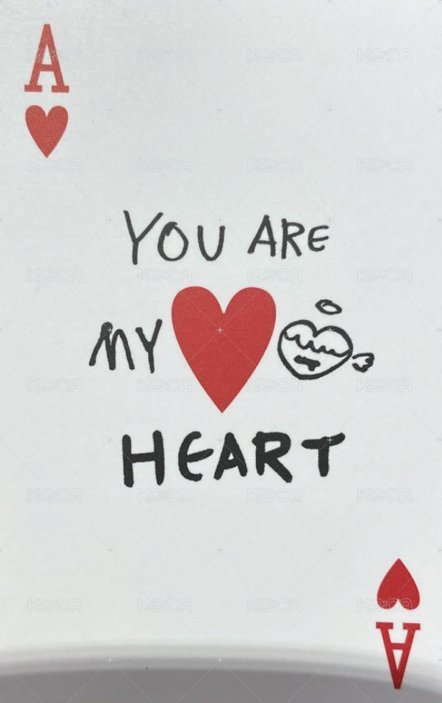 A
YOU ARE
MY
HEART
A